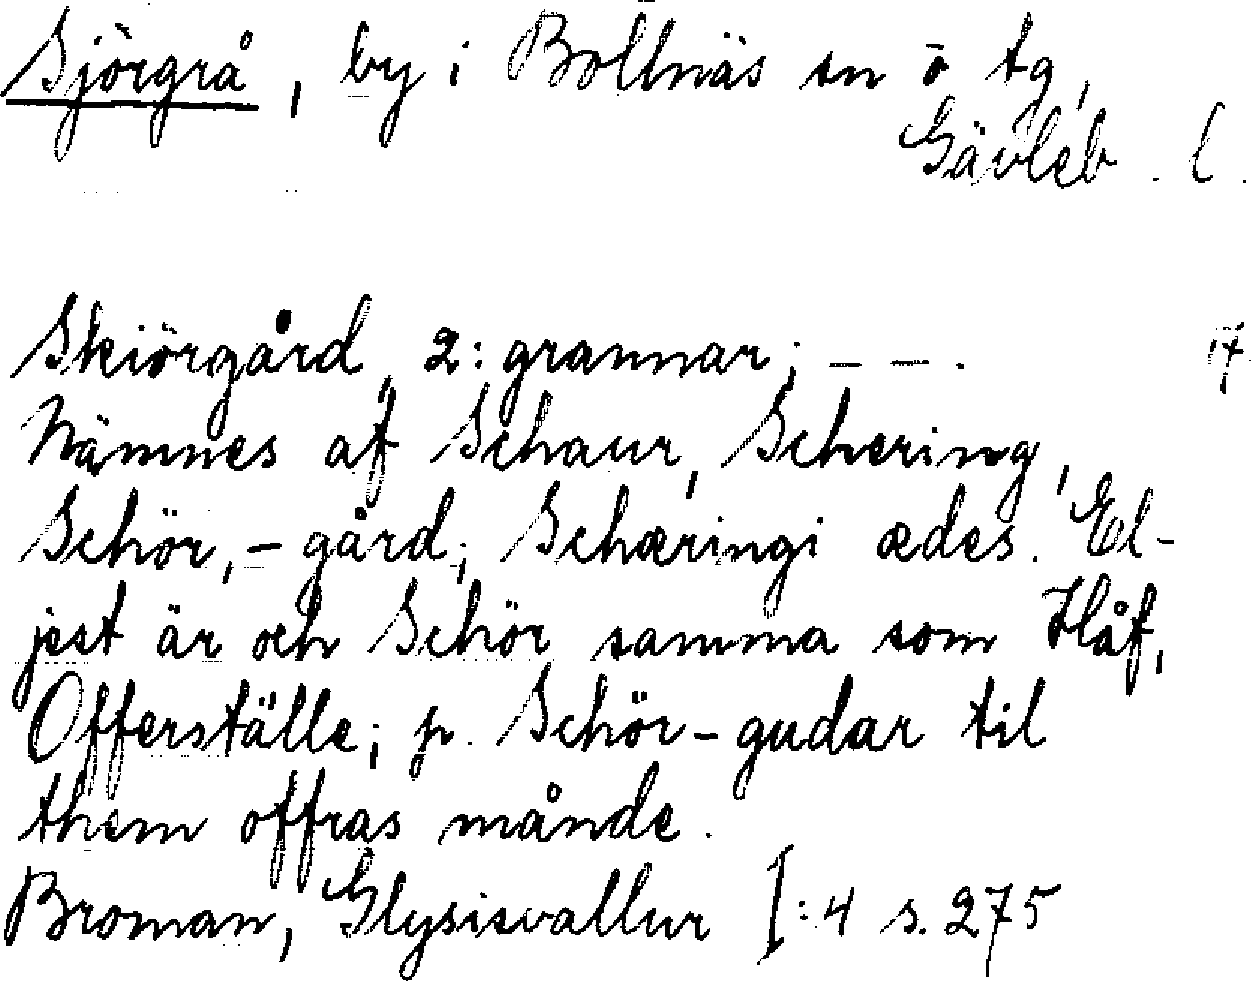 Sjörgrå, by i Bollnäs sn o tg,
Gävleb. l.
Skiörgård 2: grannar; – – .
Nämnes af Schaur, Schering,
Schör,-gård; Schæringi ædes. El-
jest är och Schör samma som Håf,
Offerställe; p. Schör-gudar til
them offras månde.
Broman, Glysisvallur I:4 s. 275